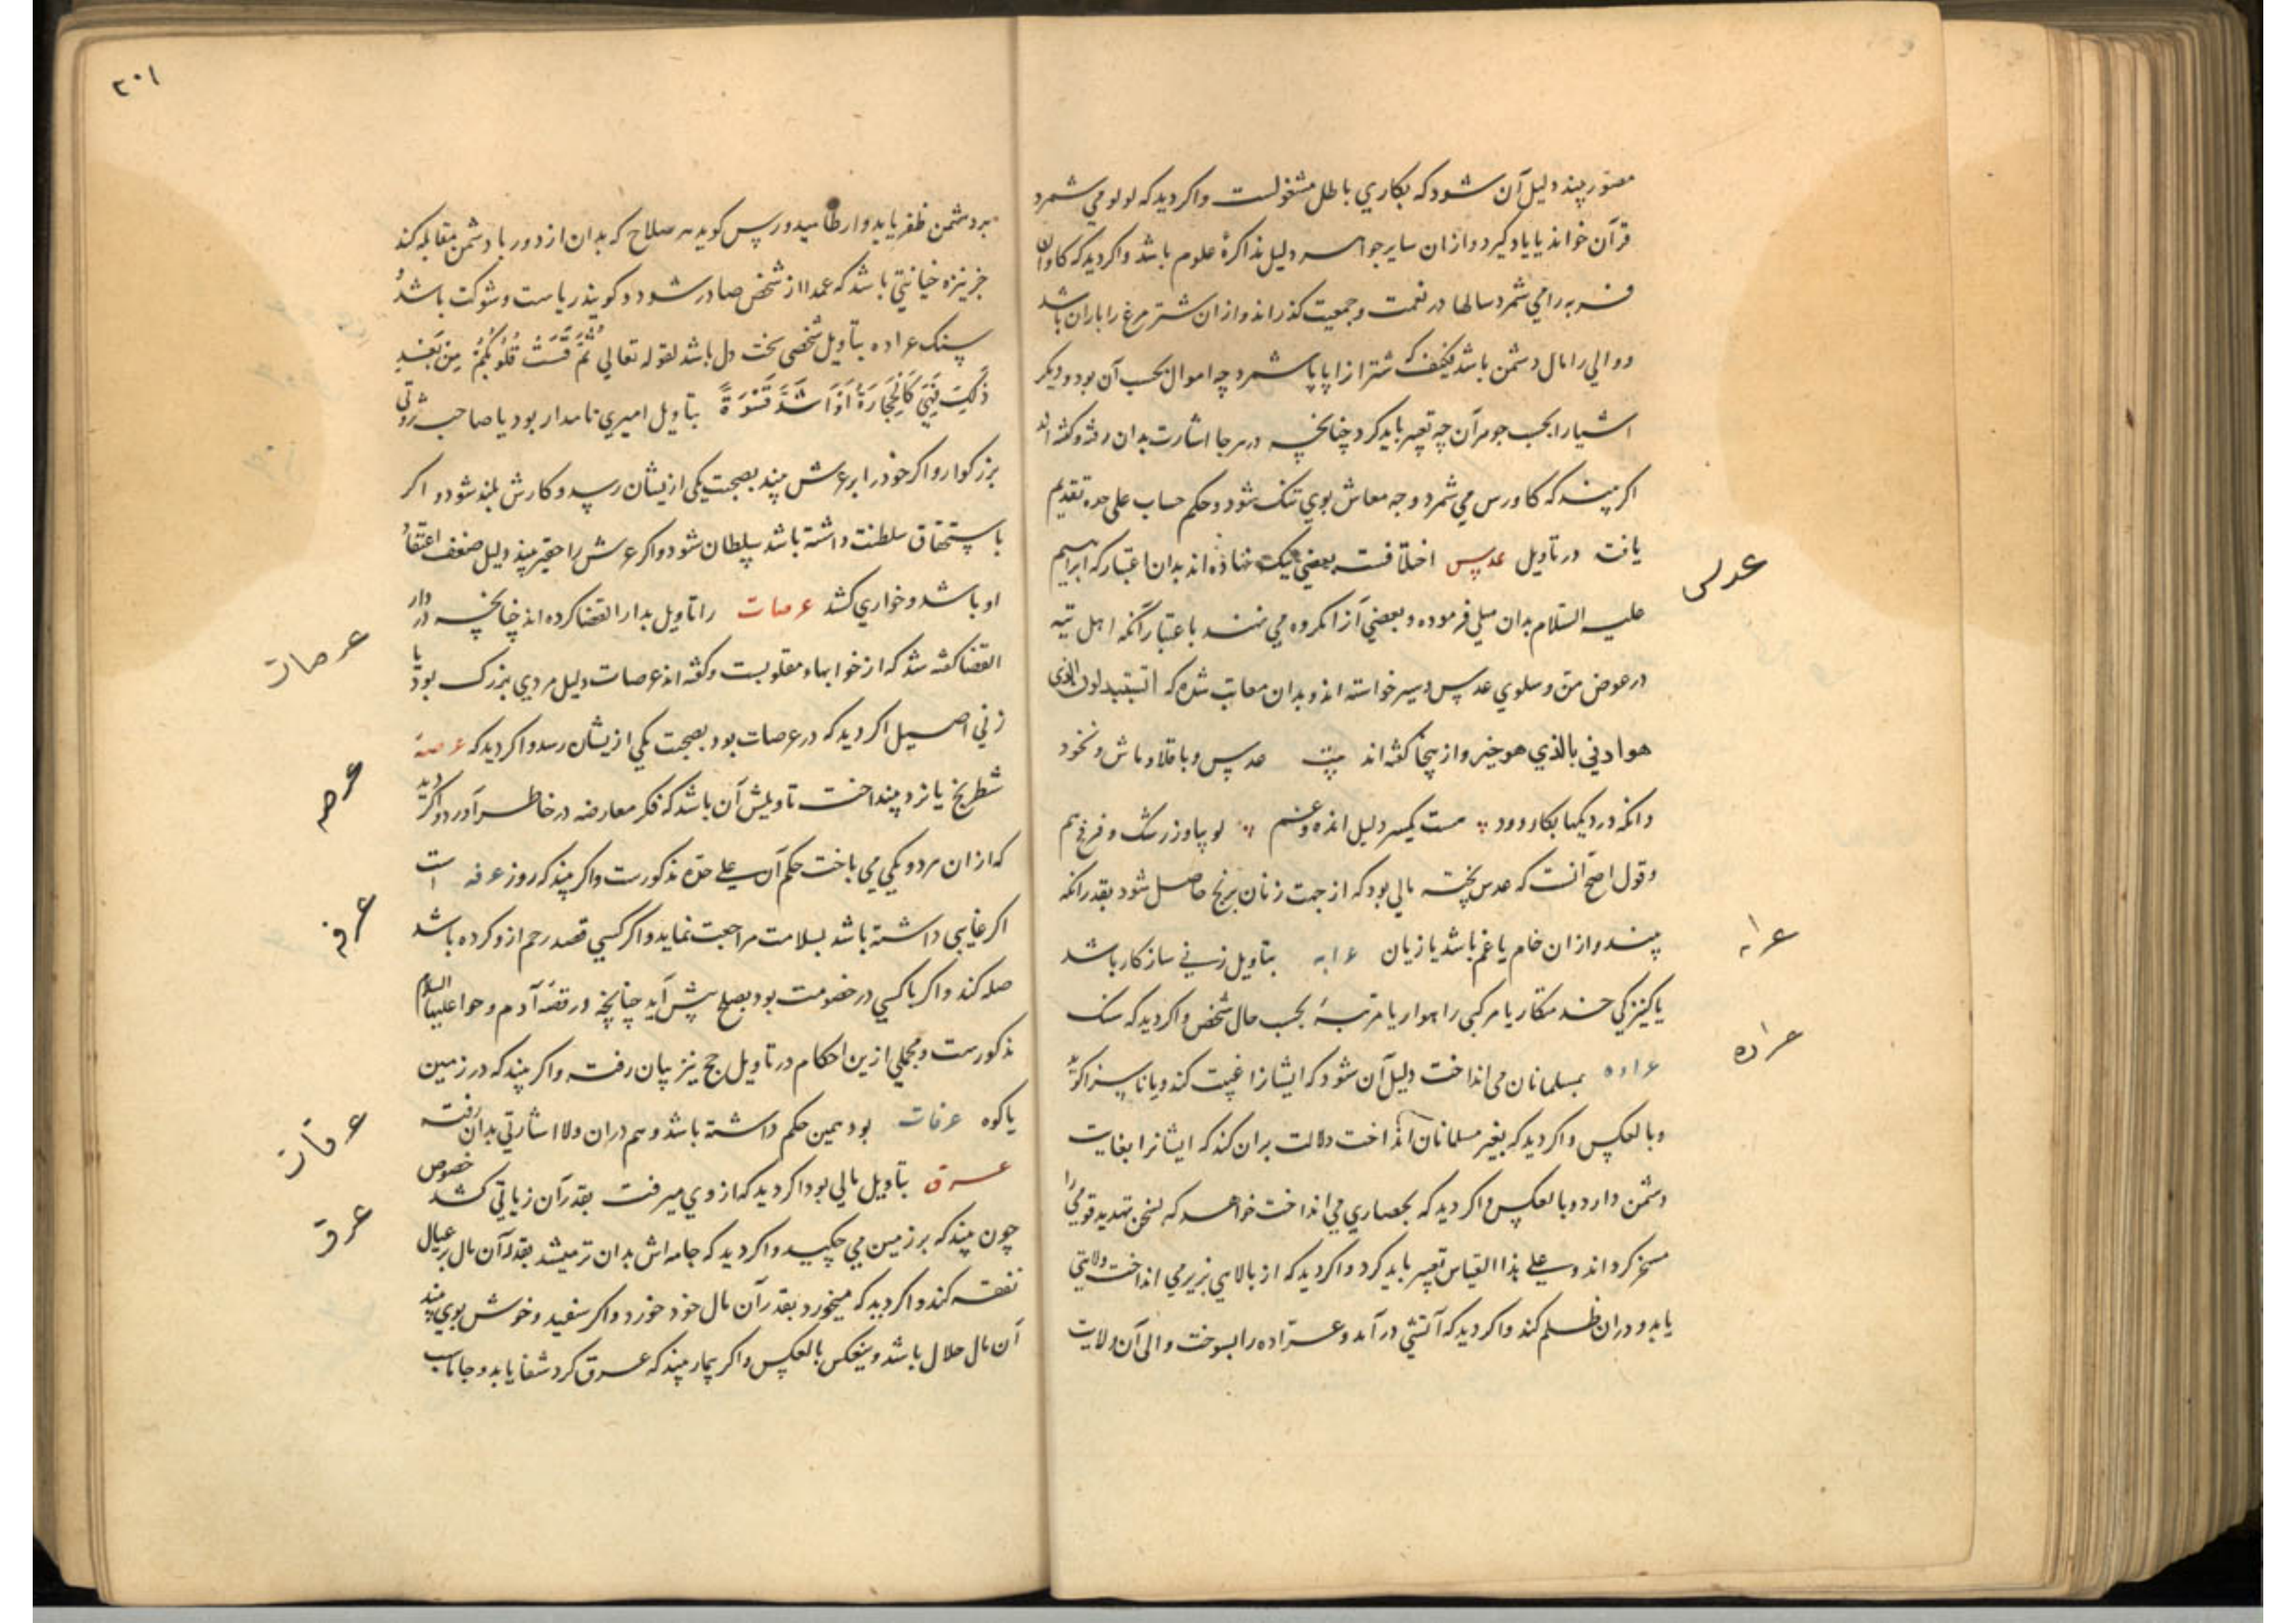 مصور بیند دلیل آن شود که بکاری باطل مشغولست و اگر دید که لولو می شمرد
قرآن خواند یا یاد گیرد و از ان سایر جواهر دلیل مذاکرهٔ علوم باشد و اگر دید که کاوان
فربه را می شمرد سالها در نعمت و جمعیت گذراند و از ان شتر مرغ را باران باشد
و والی را مال دشمن باشد که شتر از شمرد چه اموال بحسب آن بود و دیگر
اشیا را بحسب جوهر آن چه تعبیر باید کرد چنانچه در هر جا اشارت بدان رفته و گفته اند
اگر بیند که کاورس می شمرد وجه معاش بوی تنک شود و حکم حساب علی حده تقدیم
یافت در تاویل عدس اختلافست بعضی نیک نهاده اند بدان اعتبار که ابراهیم
عدس
علیه السلام بدان میلی فرموده و بعضی آنرا مکروه می نهند باعتبار آنکه اهل تیه
در عوض من و سلوی عدس و سیر خواسته اند و بدان معاتب شده که اتستبدلون الذی
هو ادنی بالذی هو خیر و از ینجا گفته اند بیت عدس و باقلا و ماش و نخود
وانکه در دیکها بکار رود هست یکسر دلیل انده و غم لوبیا و زرشک و هم
و قول اصح آنست که عدس پخته مالی بود که از جهت زنان برنج حاصل شود بقدر انکه
بیند و از ان خام یا غم باشد یا زیان عرابه بتاویل زنی سازکار باشد
عرابه
یا کنیزکی خدمتکار یا مرکبی راهوار یا مرتبهٔ بحسب حال شخص و اگر دید که سنک
عراده بمسلمانان می انداخت دلیل آن شود که ایشانرا غیبت کند و یا ناسزا گوید
عراده
و بالعکس و اگر دید که بغیر مسلمانان انداخت دلالت بران کند که ایشانرا بغایت
دشمن دارد و بالعکس و اگر دید که بحصاری می انداخت خواهد که بسخن تهدید قومی را
مسخر کرداند و علی هذا القیاس تعبیر باید کرد و اگر دید که از بالایی بزیر می انداخت ولایتی
یابد و دران ظلم کند و اگر دید که آتشی در آمد و عراده را بسوخت والی آن ولایت
۲۰۱
بر دشمن ظفر یابد و گوید هر صلاح که بدان از دور با دشمن مقابله کند
جز نیزه خیانتی باشد که عمدا از شخص صادر شود و گویند ریاست و شوکت باشد و
سنک عراده بتاویل شخصی سخت دل باشد لقوله تعالی ثُمَّ قَسَتْ قُلُوبُكُمْ مِنْ بَعْدِ
ذَلِكَ فَهِيَ كَالْحِجَارَةِ أَوْ أَشَدُّ قَسْوَةً بتاویل امیری نامدار بود یا صاحب ثروتی
بزرگوار و اگر خود را بر عرش بیند بصحبت یکی ازیشان رسد و کارش بلند شود و اگر
باستحقاق سلطنت داشته باشد سلطان شود و اگر عرش را حقیر بیند دلیل ضعف اعتقاد
او باشد و خواری کشد عرصات را تاویل بدار القضا کرده اند چنانچه در دار
عرصات
القضا گفته شد که از خوابهاء مقلوبست و گفته اند عرصات دلیل مردی بزرک بود یا
زنی اصیل اگر دید که در عرصات بود بصحبت یکی ازیشان رسد و اگر دید که عرصهٔ
شطرنج یا نرد بینداخت تاویلش آن باشد که فکر معارضه در خاطر آورد و اگر دید
عرصه
که از ان هر دو یکی می باخت حکم آن علی حده مذکورست و اگر بیند که روز عرفه است
اگر غایبی داشته باشد بسلامت مراجعت نماید و اگر کسی قصد رحم ازو کرده باشد
عرفه
صله کند و اگر با کسی در خصومت بود بصلح پیش آید چنانچه در قصهٔ آدم و حوا علیهما السلام
مذکورست و مجملی ازین احکام در تاویل حج نیز بیان رفت و اگر بیند که در زمین
یا کوه عرفات بود همین حکم داشته باشد و هم دران ولا اشارتی بدان رفته
عرفات
عرق بتاویل مالی بود اگر دید که از وی میرفت بقدر آن زیانی کشد خصوص
عرق
چون بیند که بر زمین می چکید و اگر دید که جامه اش بدان تر میشد بقدر آن مال بر عیال
نفقه کند و اگر دید که میخورد بقدر آن مال خود خورد و اگر سفید و خوش بوی بیند
آن مال حلال باشد و ینعکس بالعکس و اگر بیمار بیند که عرق کرد شفا یابد و